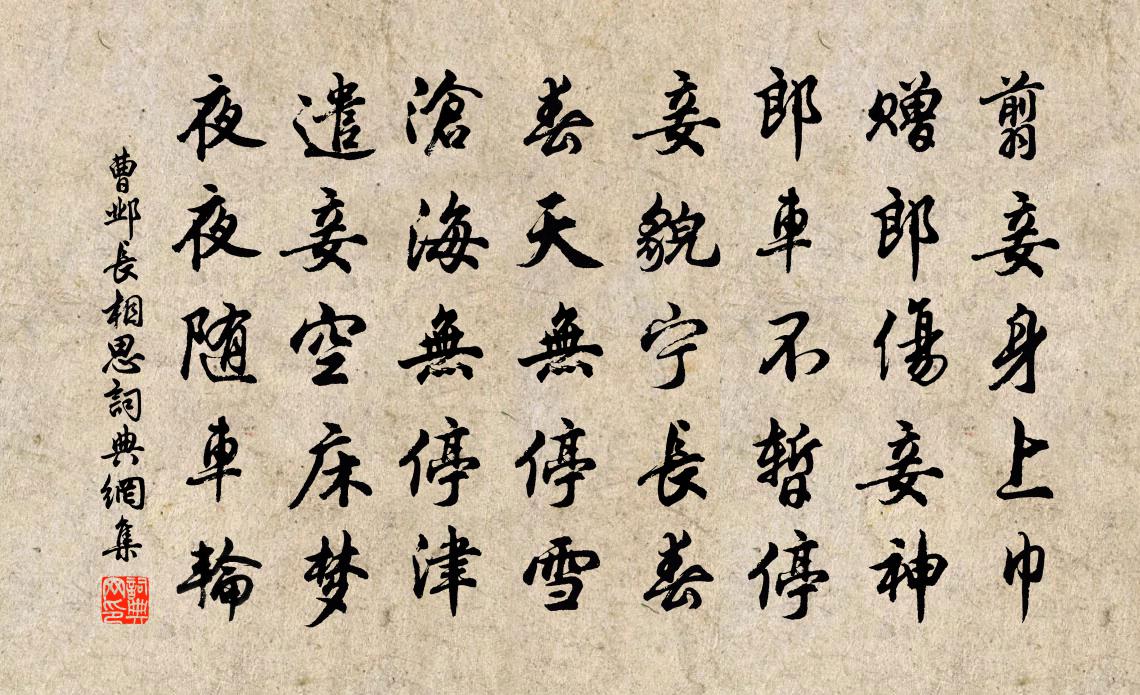 翦妾身上巾
赠郎傷妾神
郎車不暫停
妾貌宁長春
春天無停雪
滄海無停津
遣妾空床梦
夜夜随車輪
曹邺長相思詞典網集
詞典网印